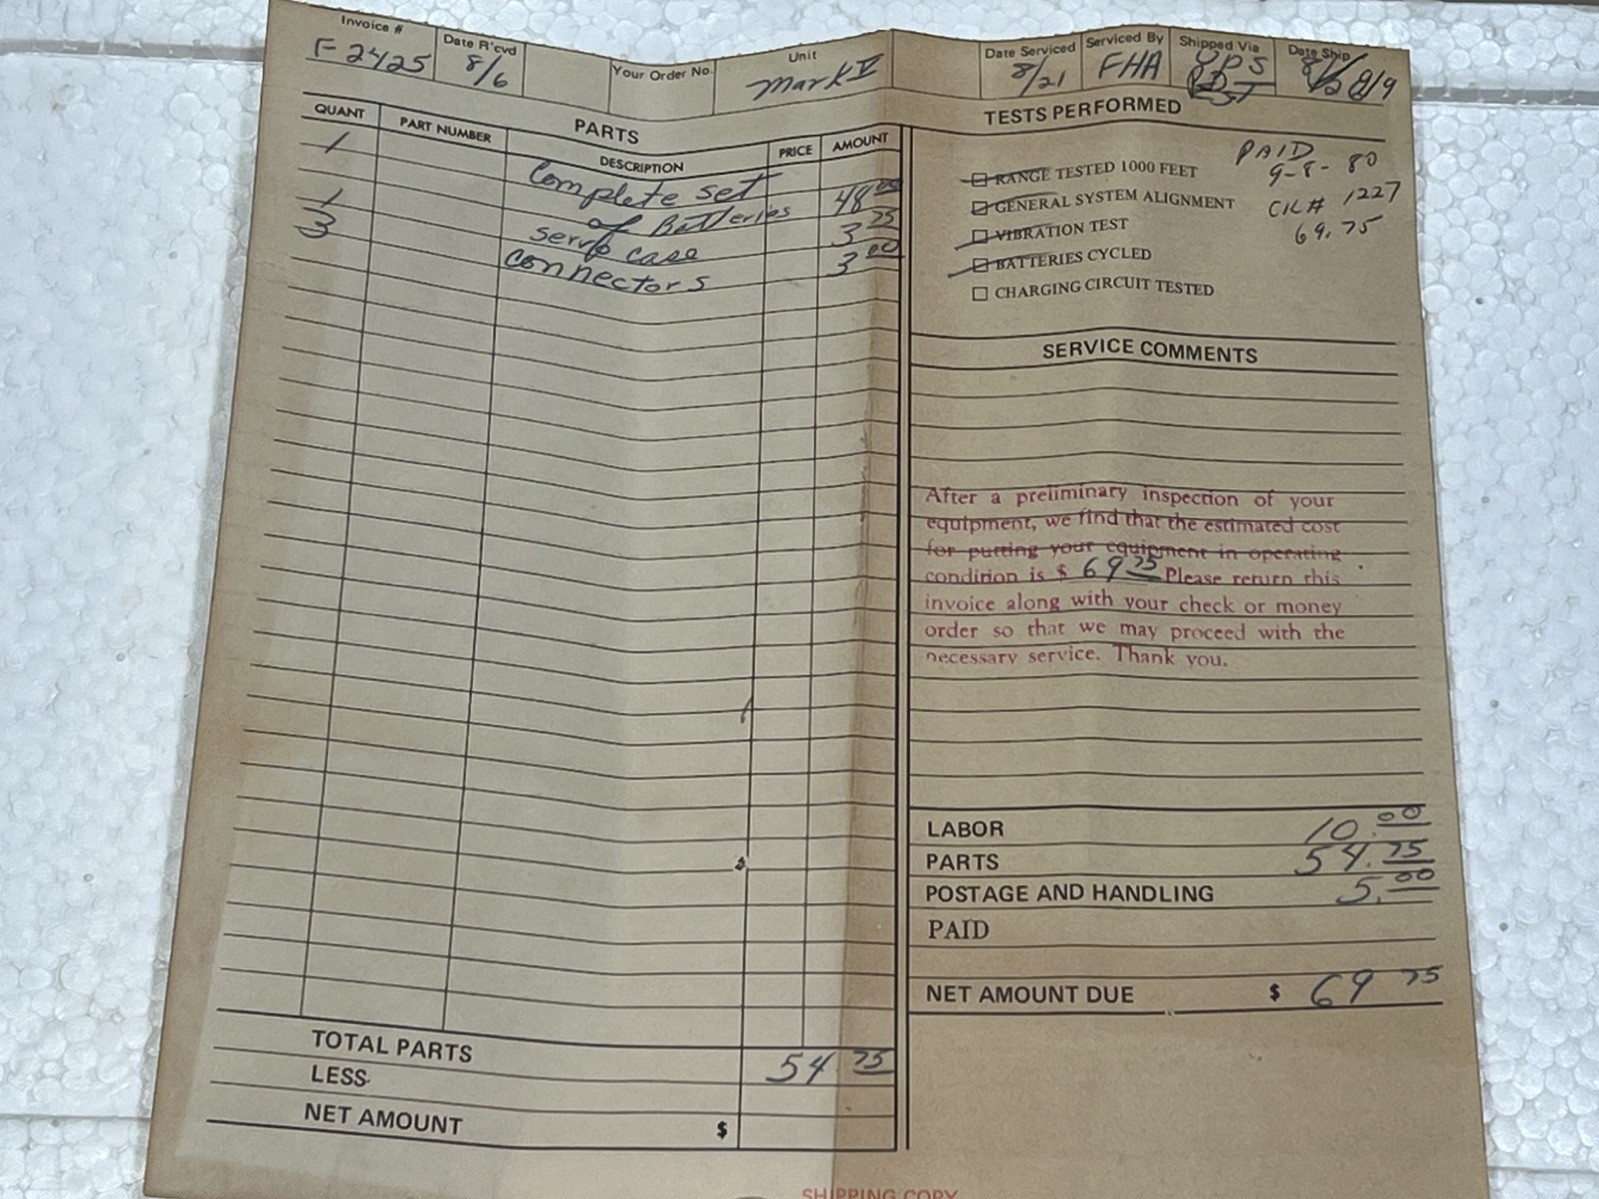 Invoice # Date R'cvd Your Order No. Unit Date Serviced Serviced By Shipped Via Date Ship
F-2425 8/6 Mark V 8/21 FHA UPS
PARTS
QUANT PART NUMBER DESCRIPTION PRICE AMOUNT
1 Complete set
of Batteries 48 00
1 servo case 3 75
3 connectors 3 00
TOTAL PARTS 54 75
LESS
NET AMOUNT $
TESTS PERFORMED
RANGE TESTED 1000 FEET
GENERAL SYSTEM ALIGNMENT
VIBRATION TEST
BATTERIES CYCLED
CHARGING CIRCUIT TESTED
PAID
9-8-80
CK# 1227
69.75
SERVICE COMMENTS
After a preliminary inspection of your
equipment, we find that the estimated cost
for putting your equipment in operating
condition is $ 69 75 Please return this
invoice along with your check or money
order so that we may proceed with the
necessary service. Thank you.
LABOR 10.00
PARTS 54.75
POSTAGE AND HANDLING 5.00
PAID
NET AMOUNT DUE $ 69 75
SHIPPING COPY